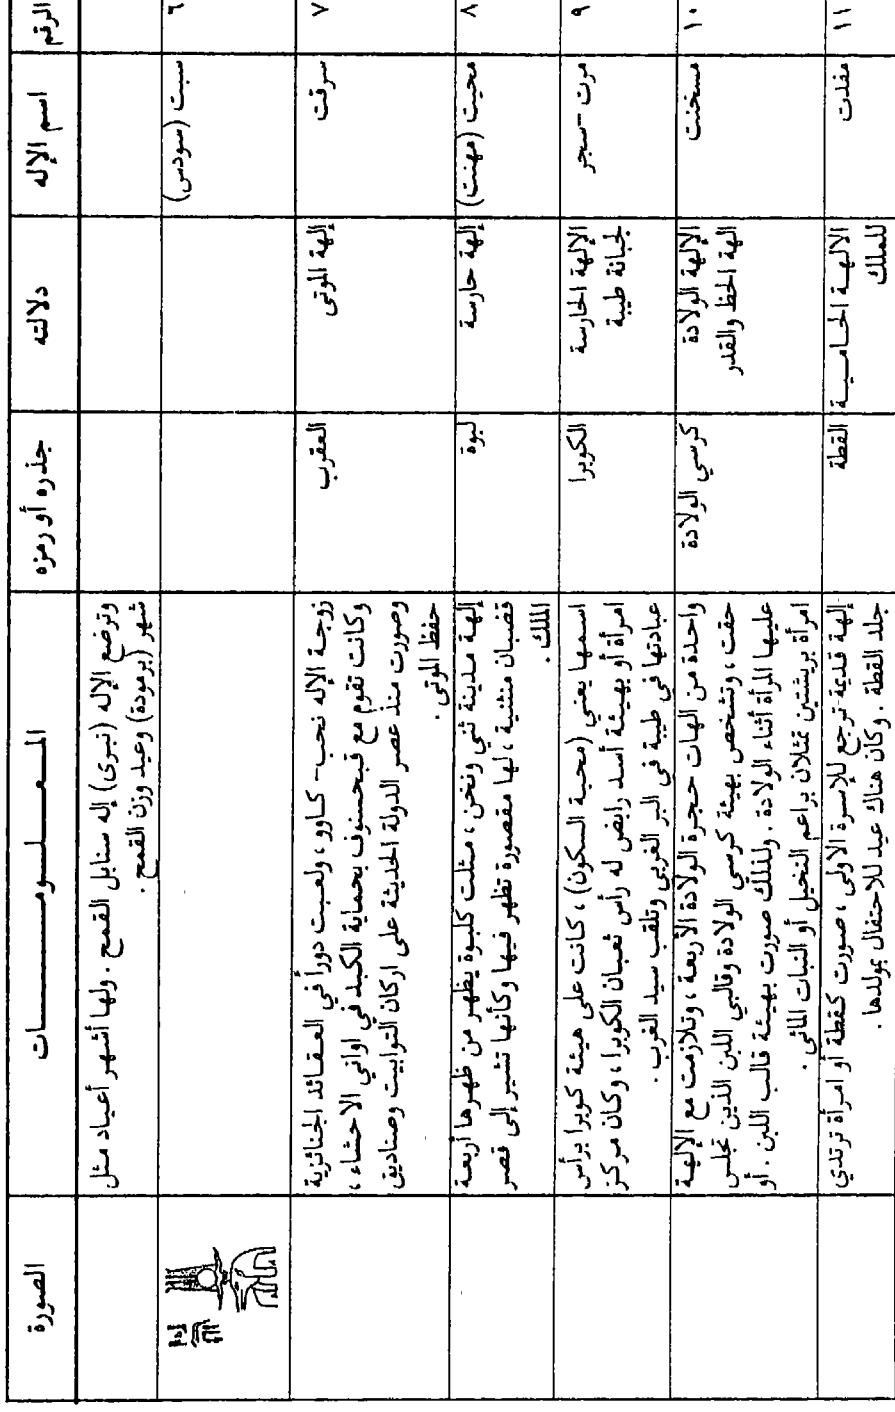 الرقم	اسم الإله	دلالته	جذره أو رمزه	المعلومات	الصورة
وترضع الإله (نبرى) إله سنابل القمح . ولها أشهر أعياد مثل
شهر (برمودة) وعيد وزن القمح .
٦	سبت (سودس)
٧	سرقت	إلهة الموتى	العقرب	زوجة الإله نحب - كاوو ، ولعبت دوراً في العقائد الجنائزية
وكانت تقوم مع قبحسنوف بحماية الكبد في اواني الاحشاء ،
وصورت منذ عصر الدولة الحديثة على اركان التوابيت وصناديق
حفظ الموتى .
٨	محيت (مهنت)	إلهة حارسة	لبوة	إلهة مدينة ثني ونخن ، مثلت كلبوة يظهر من ظهرها أربعة
قضبان منثنية ، لها مقصورة تظهر فيها وكأنها تشير إلى قصر
الملك .
٩	مرت - سجر	الإلهة الحارسة	الكوبرا	اسمها يعني (محبة السكون) ، كانت على هيئة كوبرا برأس
لجبانة طيبة	امرأة أو بهيئة أسد رابض له رأس ثعبان الكوبرا ، وكان مركز
عبادتها في طيبة في البر الغربي وتلقب سيد الغرب .
١٠	مسخنت	الإلهة الولادة	كرسي الولادة	واحدة من الهات حجرة الولادة الأربعة ، وتلازمت مع الإلهة
الهة الحظ والقدر	حقت ، وتشخص بهيئة كرسي الولادة وقالبي اللبن الذين تجلس
عليها المرأة أثناء الولادة . ولذلك صورت بهيئة قالب اللبن . أو
امرأة بريشتين تمثلان براعم النخيل أو النبات المائي .
١١	مفدت	الالهة الحامية	القطة	إلهة قديمة ترجع للإسرة الاولى ، صورت كقطة أو امرأة ترتدي
للملك	جلد القطة . وكان هناك عيد للاحتفال بمولدها .